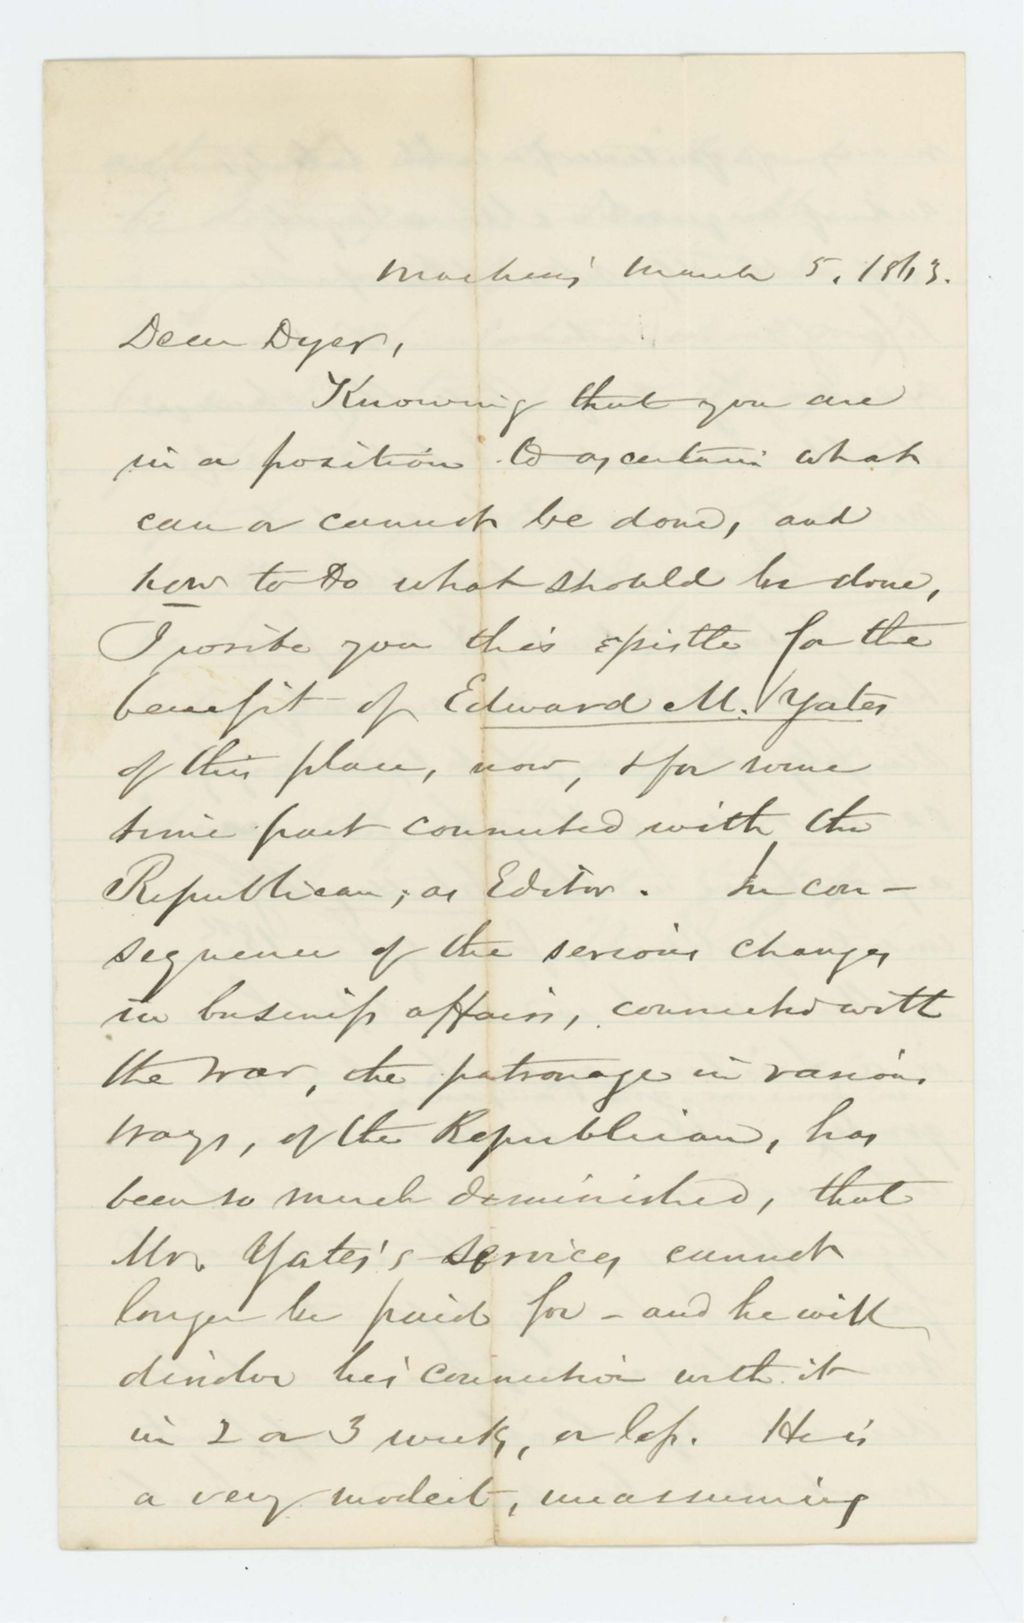 Machias March 5, 1863.
Dear Dyer,
Knowing that you are
in a position to ascertain what
can or cannot be done, and
how to do what should be done,
I write you this epistle for the
benefit of Edward M. Yates
of this place, now, & for some
time past connected with the
Republican, as Editor. In con-
sequence of the serious changes
in business affairs, connected with
the war, the patronage in various
ways, of the Republican, has
been so much diminished, that
Mr. Yates's services cannot
longer be paid for - and he will
disolve his connection with it
in 2 or 3 weeks, or less. He is
a very modest, unassuming